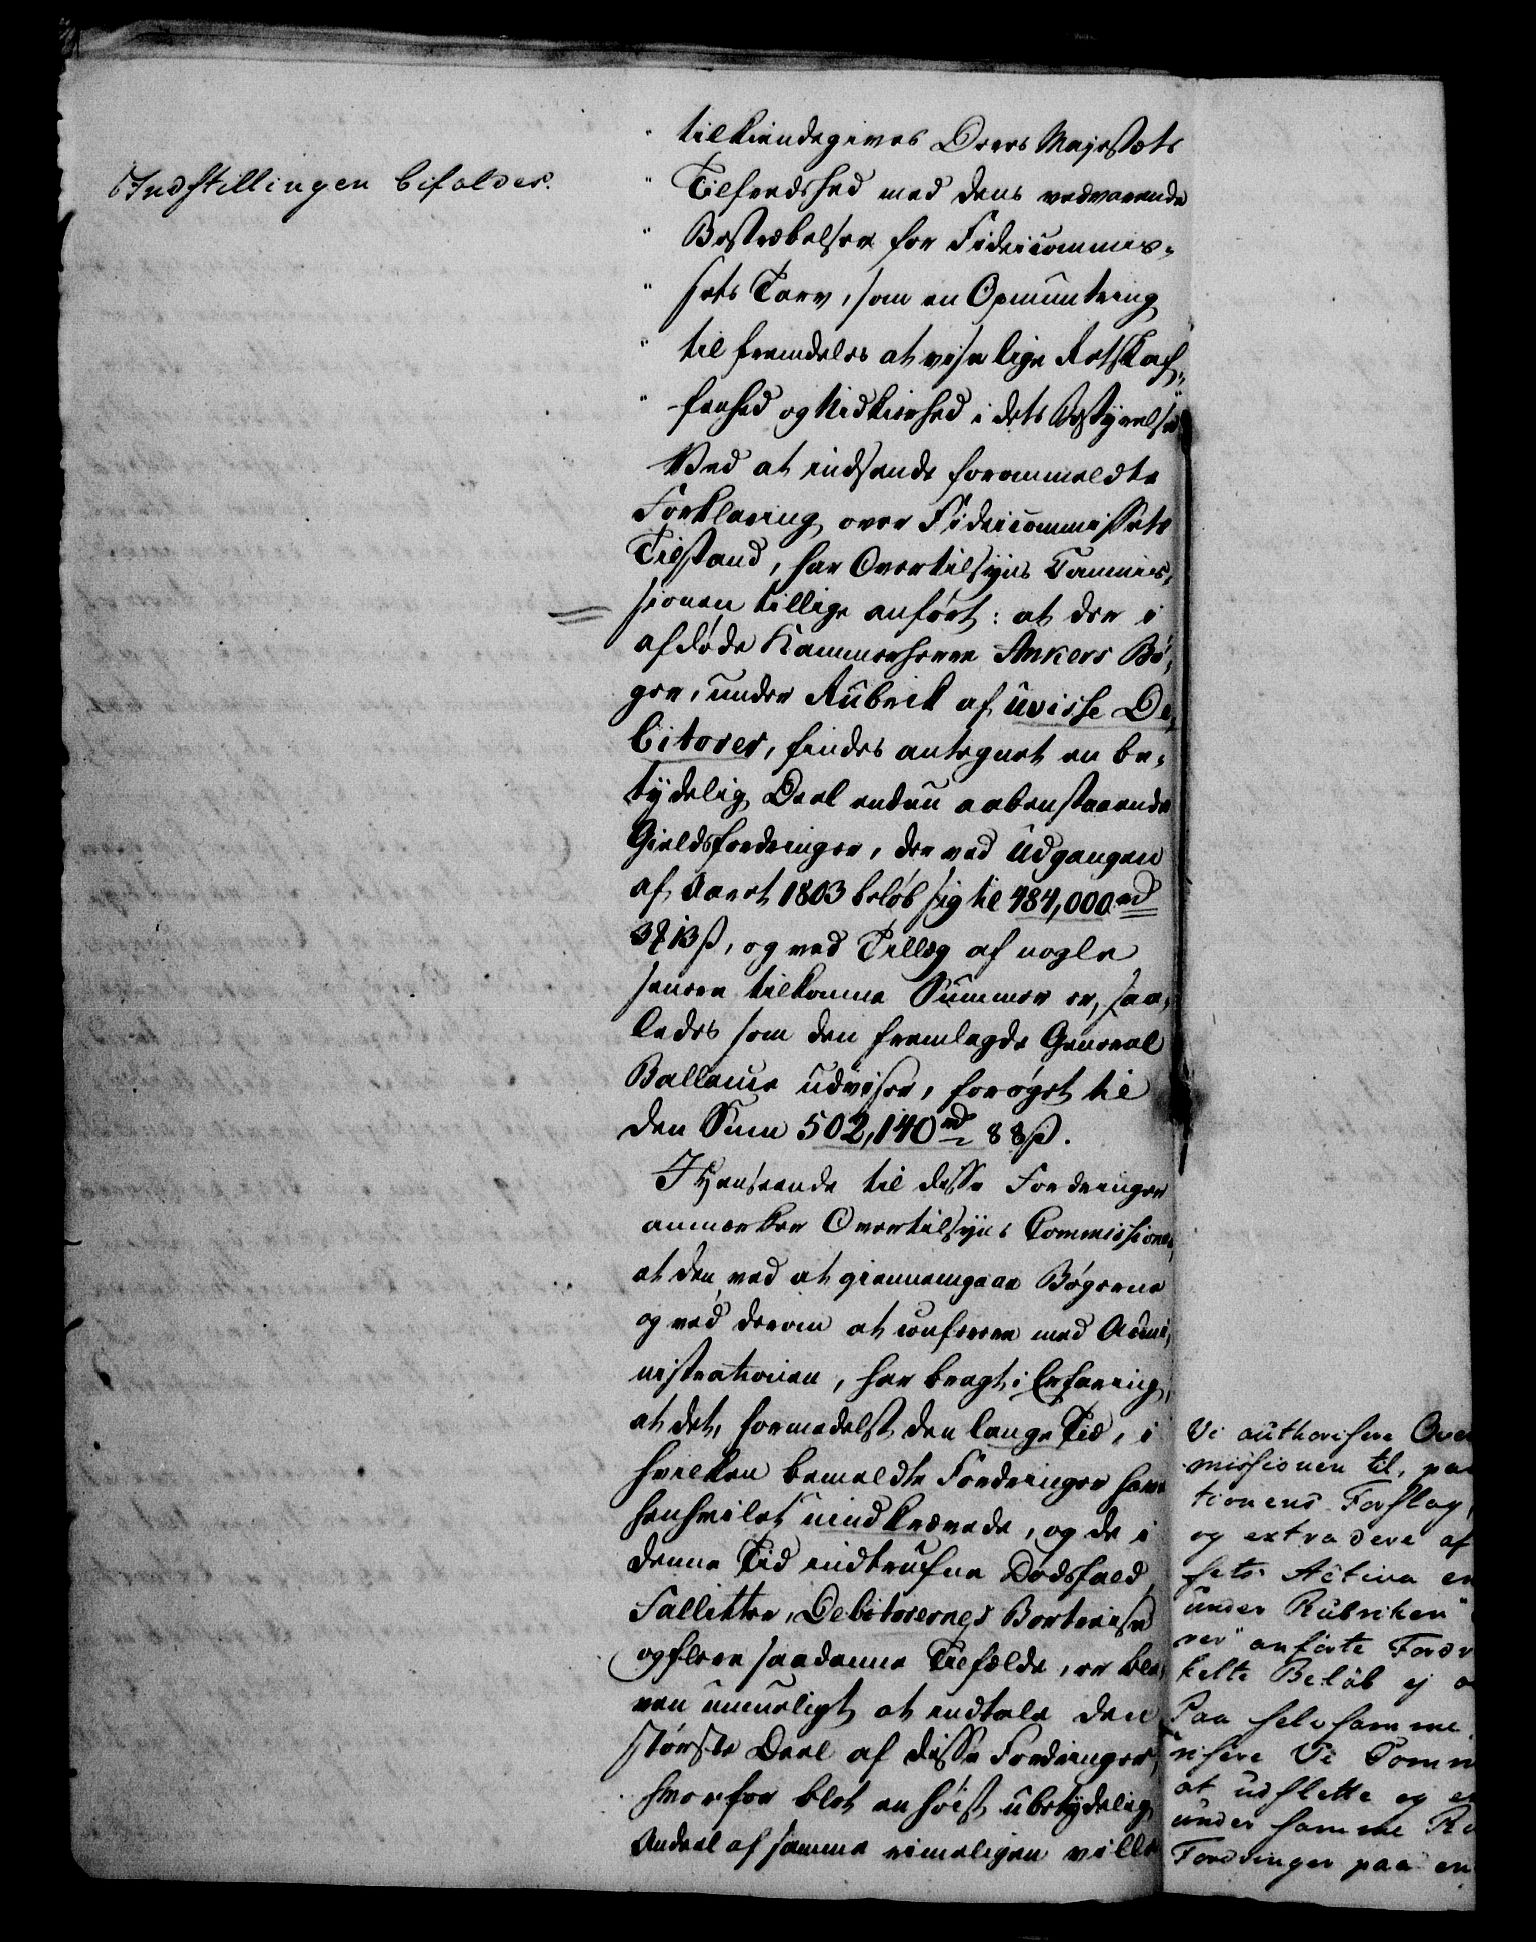 Indstillingen bifaldes.
" tilkiendegives Deres Majestæts
" Tilfredshed med dens vedvarende
" Bestræbelser for Fideicommis-
" sets Tarv, som en Opmuntring
" til fremdeles at vise lige Retskaf-
" fenhed og Nidkierhed i dets Bestyrelse
Ved at indsende forommeldte
Forklaring over Fideicommissets
Tilstand, har Overtilsyns Commis-
sionen tillige anført: at der i
afdøde Kammerherre Ankers Bø-
ger, under Rubrik af uvisse De-
bitorer, findes antegnet en be-
tydelig Deel endnu aabenstaaende
Gieldsfordringer, der ved Udgangen
af Aaret 1803 beløb sig til 484,000 rd
3 ƶ 13 ß, og ved Tillæg af nogle
senere tilkomne Summer er, saa-
ledes som den fremlagde General
Ballance udviser, forøget til
den Sum 502,140 rd 88 ß.
I Henseende til disse Fordringer
anmærker Overtilsyns Commissionen,
at den, ved at giennemgaae Bøgerne
og ved derom at conferere med Admi-
nistrationen, har bragt i Erfaring,
at det, formedelst den lange Tid, i
hvilken bemeldte Fordringer have
henhvilet uindkrævede, og de i
denne Tid indtrufne Dødsfald,
Fallitter, Debitorernes Bortreise
og flere saadanne Tilfælde, er ble-
ven umueligt at indtale den
største Deel af disse Fordringer,
hvorfor blot en høist ubetydelig
Andeel af samme rimeligen ville
Vi authorisere Over
missionen til, paa
tionens Forslag,
og extradere af
sets Activa en
under Rubriken "
rer" anførte Fordr
kelte Beløb ej o
Paa selvsamme
risere Vi Comm
at udslette og e
under samme Ru
Fordringer paa en